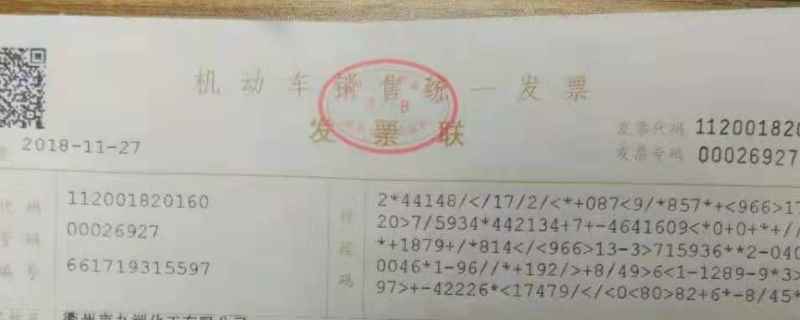 机动车销售统一发票
发票联
发票代码 112001820
发票号码 00026927
2018-11-27
代码 112001820160
号码 00026927
编号 661719315597
2*44148/</17/2/<*+087<9/*857*+<966>17
20>7/5934*442134+7+-4641609<*0+0+*+//
*+1879+/*814</<966>13-3>715936**2-040
0046*1-96//*+192/>+8/49>6<1-1289-9*3>
97>+-42226*<17479/</<0<80>82+6*-8/45*
控
码